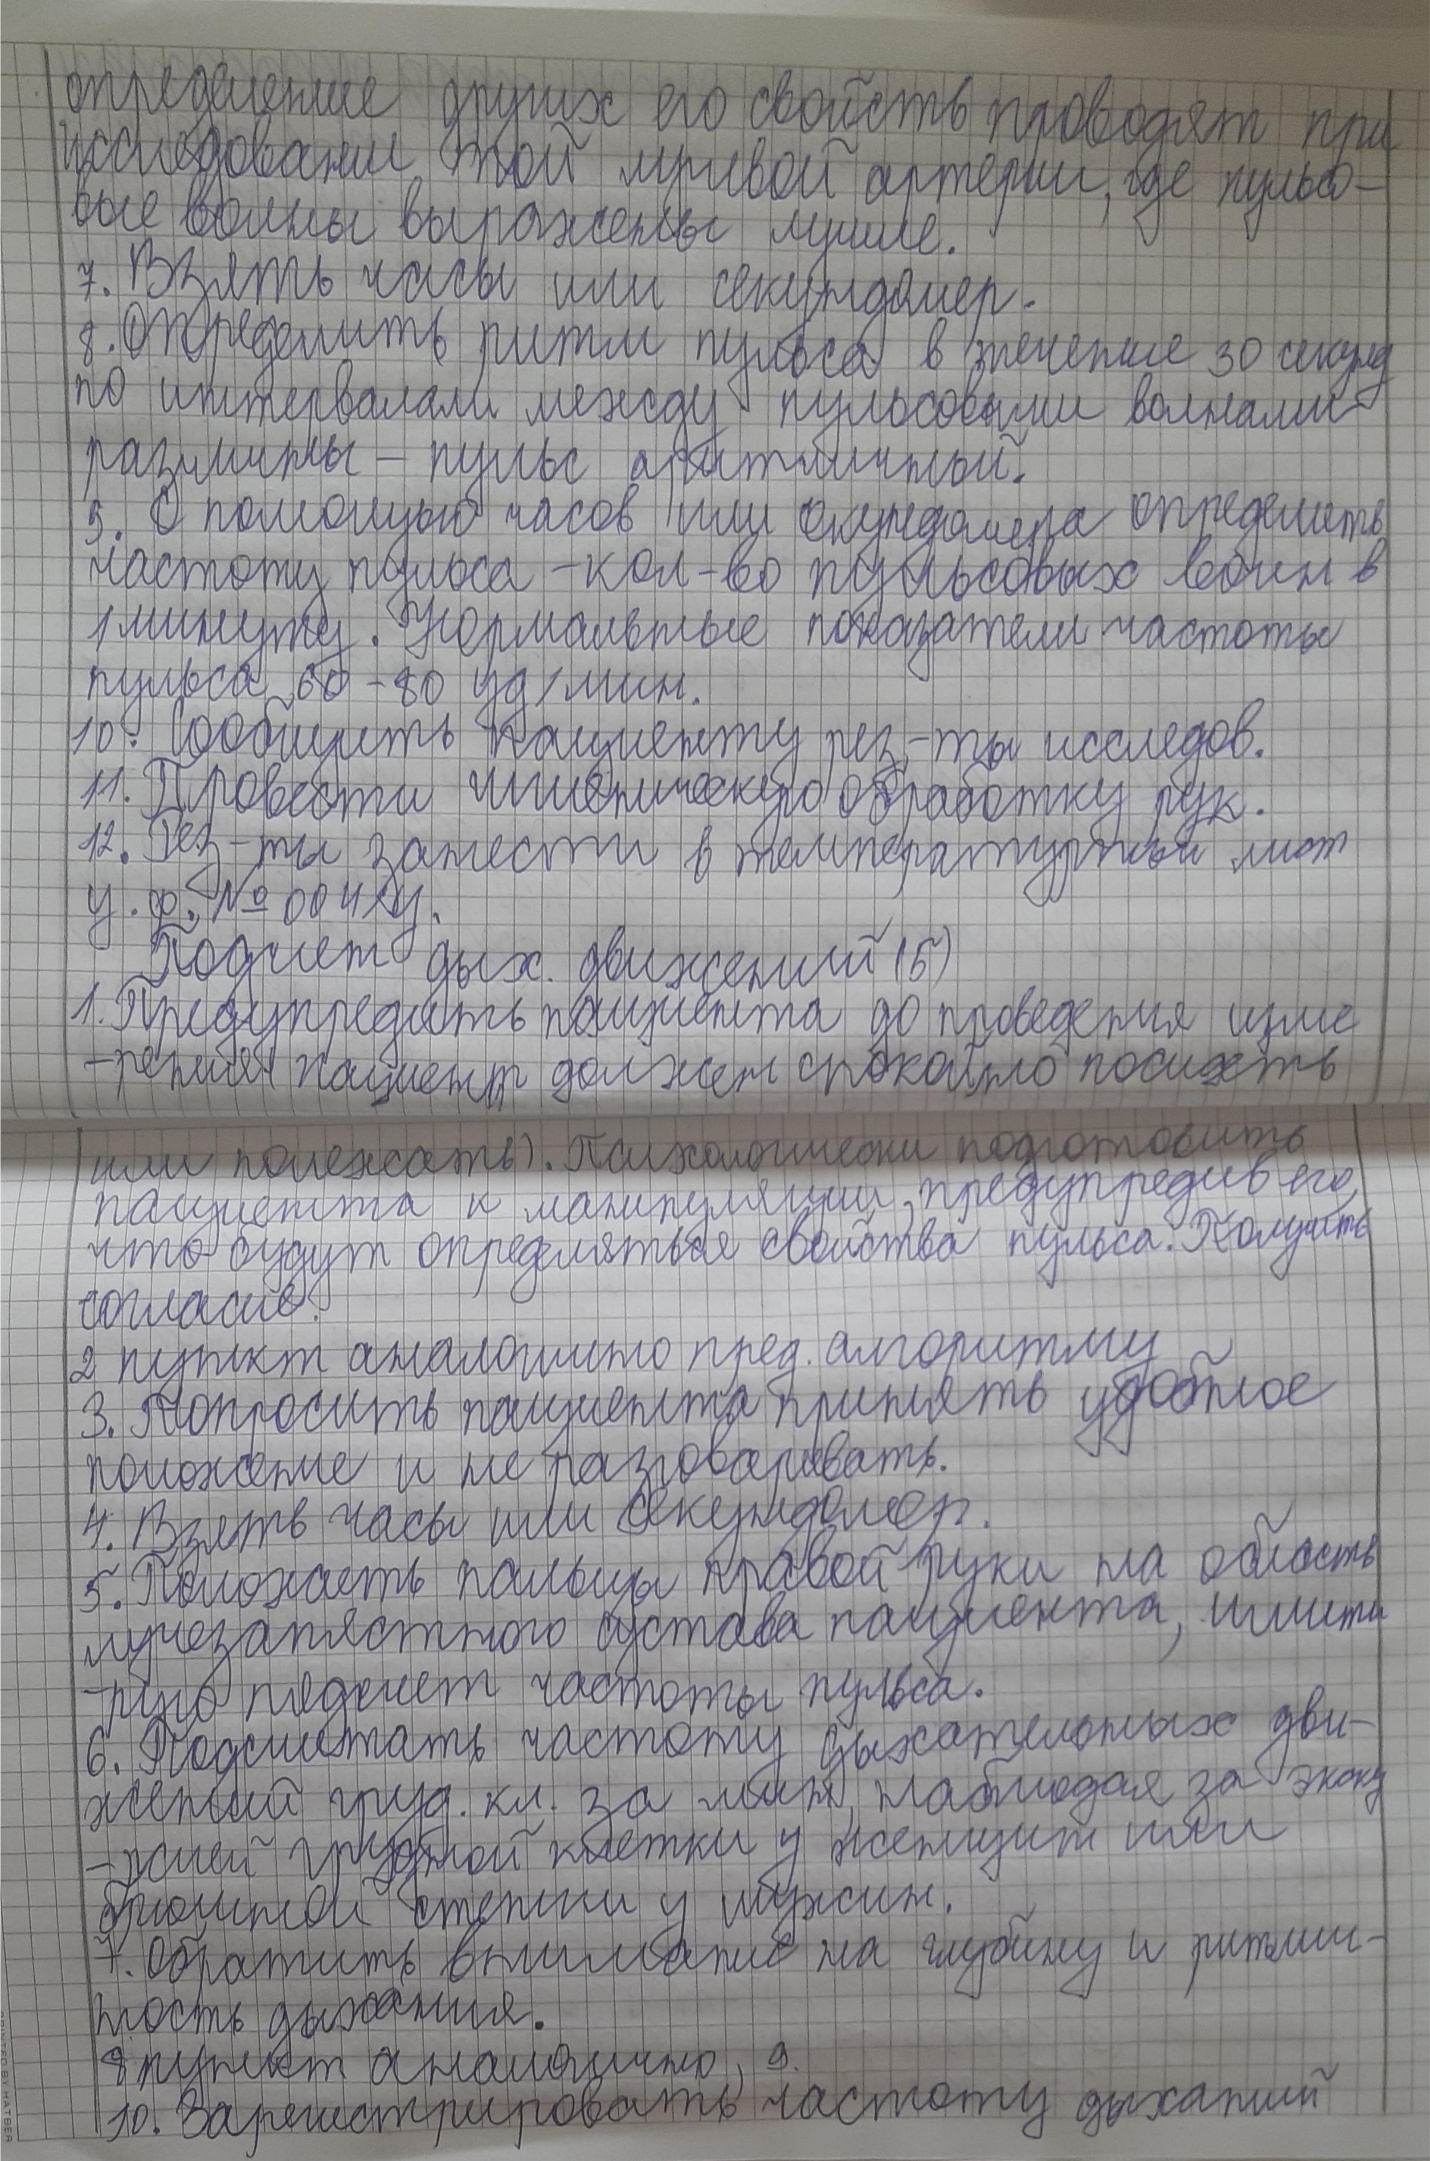 определение других его свойств проводят при
исследовании той лучевой артерии, где пульсо-
вые волны выражены лучше.
7. Взять часы или секундомер.
8. Определить ритм пульса в течение 30 секунд
по интервалам между пульсовыми волнами
различны – пульс аритмичный.
9. С помощью часов или секундомера определить
частоту пульса – кол-во пульсовых волн в
1 минуту. Нормальные показатели частоты
пульса 60-80 уд/мин.
10. Сообщить пациенту рез-ты исследов.
11. Провести гигиеническую обработку рук.
12. Рез-ты занести в температурный лист
у.ф. № 004/у.
Подсчет дых. движений (5)
1. Предупредить пациента до проведения изме
-рения (пациент должен спокойно посидеть
или полежать). Психологически подготовить
пациента к манипуляции, предупредив его,
что будут определяться свойства пульса. Получить
согласие.
2 пункт аналогично пред. алгоритму
3. Попросить пациента принять удобное
положение и не разговаривать.
4. Взять часы или секундомер.
5. Положить пальцы правой руки на область
лучезапястного сустава пациента, имити
-руя подсчет частоты пульса.
6. Подсчитать частоту дыхательных дви-
жений груд. кл. за мин, наблюдая за экску
-рсией грудной клетки у женщин или
брюшной стенки у мужчин.
7. Обратить внимание на глубину и ритмич-
ность дыхания.
8 пункт аналогично, 9.
10. Зарегистрировать частоту дыханий